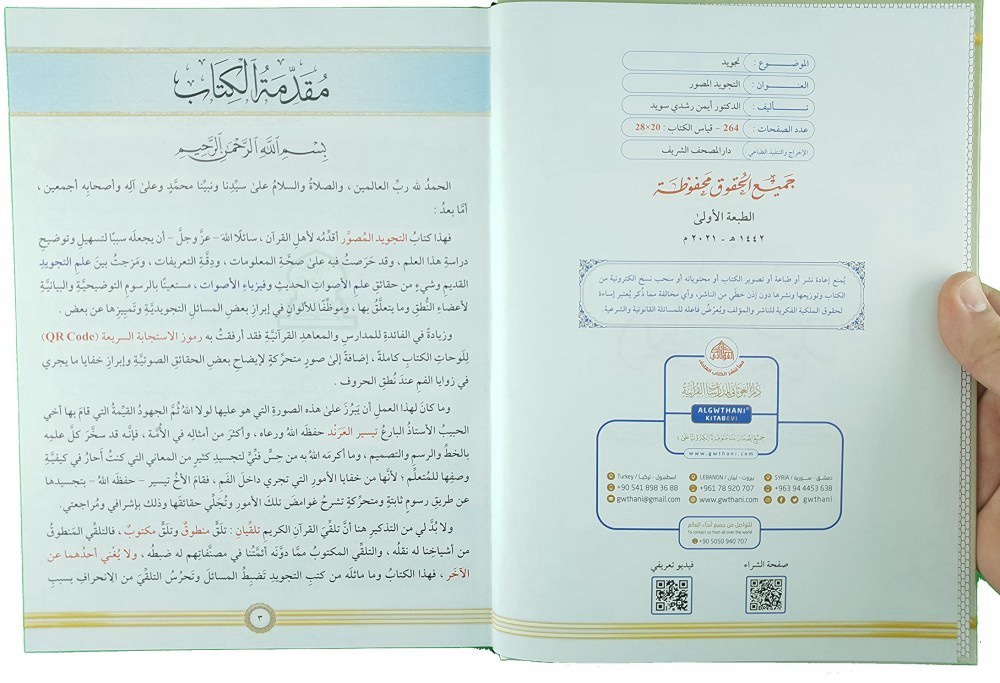 الموضوع : تجويد
العنوان : التجويد المصور
تأليف : الدكتور أيمن رشدي سويد
عدد الصفحات : 264 - قياس الكتاب : 20×28
الإخراج والتنفيذ الطباعي : دار المصحف الشريف
جميع الحقوق محفوظة
الطبعة الأولى
١٤٤٢ هـ - ٢٠٢١ م
يُمنع إعادة نشر أو طباعة أو تصوير الكتاب أو محتوياته أو سحب نسخ إلكترونية من
الكتاب وتوزيعها ونشرها دون إذن خطّي من الناشر، وأي مخالفة مما ذُكر يُعتبر إساءة
لحقوق الملكية الفكرية للناشر والمؤلف ويُعرّض فاعله للمسائلة القانونية والشرعية.
الغوثاني
دار الغوثاني للدراسات القرآنية
ALGWTHANI
KITABEVI
www.gwthani.com
دمشق - سورية / SYRIA
+963 94 4453 638
بيروت - لبنان / LEBANON
+961 78 920 707
اسطنبول - تركيا / Turkey
+90 541 898 36 88
gwthani
www.gwthani.com
gwthani@gmail.com
للتواصل من جميع أنحاء العالم
To contact us from all over the world
+90 5050 940 707
صفحة الشراء
فيديو تعريفي
مُقَدِّمَةُ الْكِتَابِ
بِسْمِ اللَّهِ الرَّحْمَنِ الرَّحِيمِ
الحمدُ لله ربِّ العالمين ، والصلاةُ والسلامُ علىٰ سيِّدنا ونبيِّنا محمَّدٍ وعلىٰ آلِه وأصحابِه أجمعين ،
أمَّا بعدُ :
فهذا كتابُ التجويد المُصوَّر أقدِّمُه لأهلِ القرآن ، سائلًا اللهَ - عزَّ وجلَّ - أن يجعلَه سببًا لتسهيلِ وتوضيحِ
دراسةِ هذا العلم ، وقد حَرَصتُ فيه علىٰ صحَّةِ المعلومات ، ودِقَّةِ التعريفات ، ومَزجتُ بينَ علمِ التجويدِ
القديمِ وشيءٍ من حقائقِ علمِ الأصواتِ الحديثِ وفيزياءِ الأصوات ، مستعينًا بالرسومِ التوضيحيَّةِ والبيانيَّةِ
لأعضاءِ النُّطقِ وما يتعلَّقُ بها ، وموظِّفًا للألوانِ في إبرازِ بعضِ المسائلِ التجويديَّةِ وتَمييزِها عن بعض .
وزيادةً في الفائدةِ للمدارسِ والمعاهدِ القرآنيَّةِ فقد أرفقتُ به رموزَ الاستجابةِ السريعة (QR Code)
لِلَوحاتِ الكتابِ كاملةً ، إضافةً إلىٰ صورٍ متحرِّكةٍ لإيضاحِ بعضِ الحقائقِ الصوتيَّةِ وإبرازِ خفايا ما يجري
في زوايا الفمِ عندَ نُطقِ الحروف .
وما كانَ لهذا العملِ أن يَبرُزَ علىٰ هذه الصورةِ التي هو عليها لولا اللهُ ثُمَّ الجهودُ القيِّمةُ التي قامَ بها أخي
الحبيبُ الأستاذُ البارعُ تيسير العَرَنْد حفظَه اللهُ ورعاه ، وأكثرَ من أمثالِه في الأُمَّة ، فإنَّه قد سخَّرَ كلَّ علمِه
بالخطِّ والرسمِ والتصميم ، وما أكرمَه اللهُ به من حِسٍّ فنِّيٍّ لتجسيدِ كثيرٍ من المعاني التي كنتُ أَحارُ في كيفيَّةِ
وصفِها للمُتعلِّم؛ لأنَّها من خفايا الأمورِ التي تجري داخلَ الفم ، فقامَ الأخُ تيسير - حفظَه اللهُ - بتجسيدِها
عن طريقِ رسومٍ ثابتةٍ ومتحرِّكةٍ تشرحُ غوامضَ تلكَ الأمورِ وتُجَلِّي حقائقَها وذلك بإشرافي ومُراجعتي.
ولا بُدَّ لي من التذكيرِ هنا أنَّ تلقِّيَ القرآنِ الكريمِ تلقِّيان : تلَقٍّ منطوقٌ وتلَقٍّ مكتوبٌ ، فالتلقِّي المَنطوقُ
من أشياخِنا له نقلُه ، والتلقِّي المكتوبُ ممَّا دوَّنَه أئمَّتُنا في مصنَّفاتِهم له ضبطُه ، ولا يُغْني أحدُهما عن
الآخَر ، فهذا الكتابُ وما ماثلَه من كتبِ التجويدِ تَضبِطُ المسائلَ وتَحرُسُ التلقِّيَ من الانحرافِ بسببِ
٣